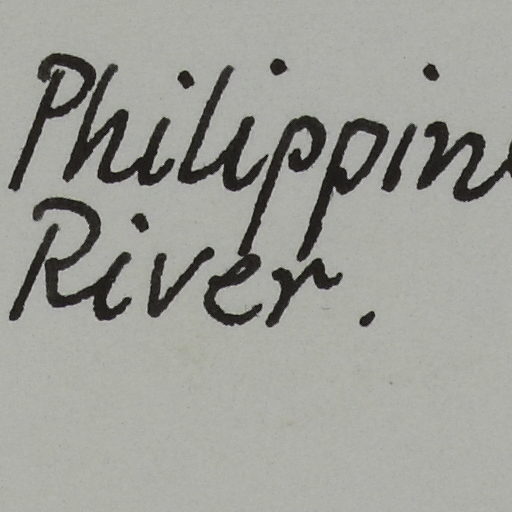 Philippin
River.